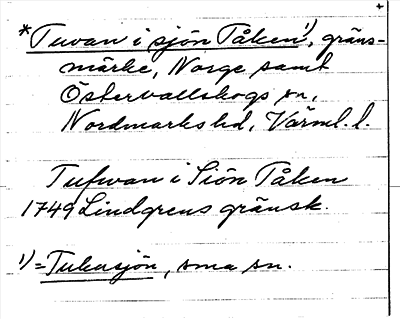 *Tuvan i sjön Tåken¹⁾, gräns-
märke, Norge samt
Östervallskogs sn,
Nordmarks hd, Värml. l.
Tufwan i Siön Tåken
1749 Lindgrens gränsk.
¹⁾=Tukusjön, sma sn.